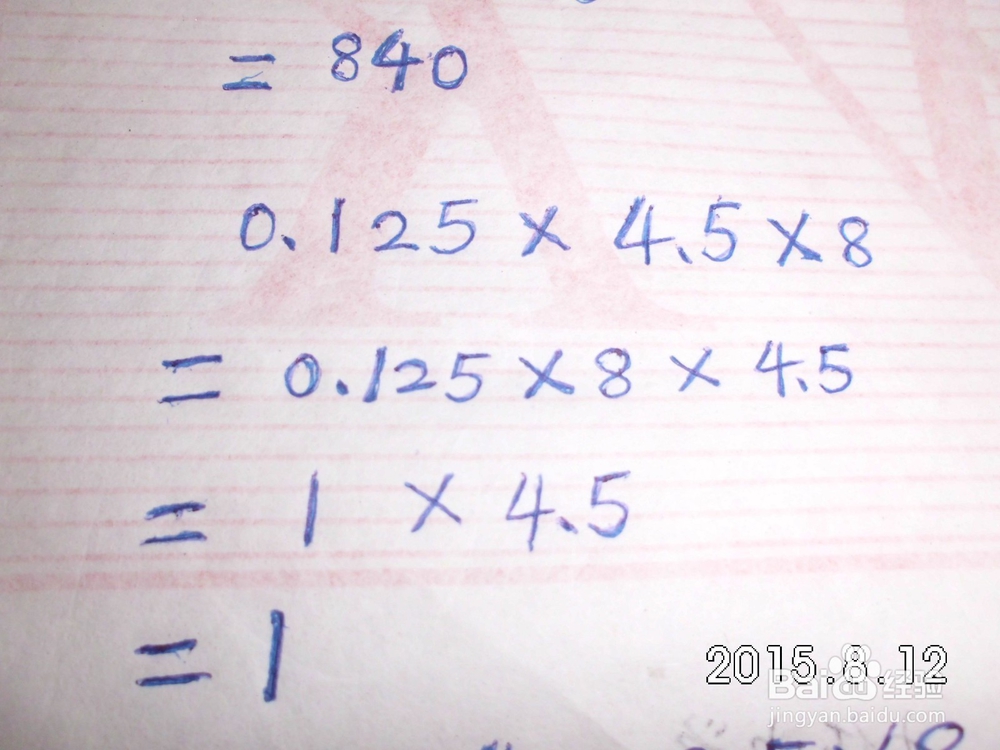 = 840
0.125 × 4.5 × 8
= 0.125 × 8 × 4.5
= 1 × 4.5
= 1
2015.8.12
Baidu 经验
jingyan.baidu.com